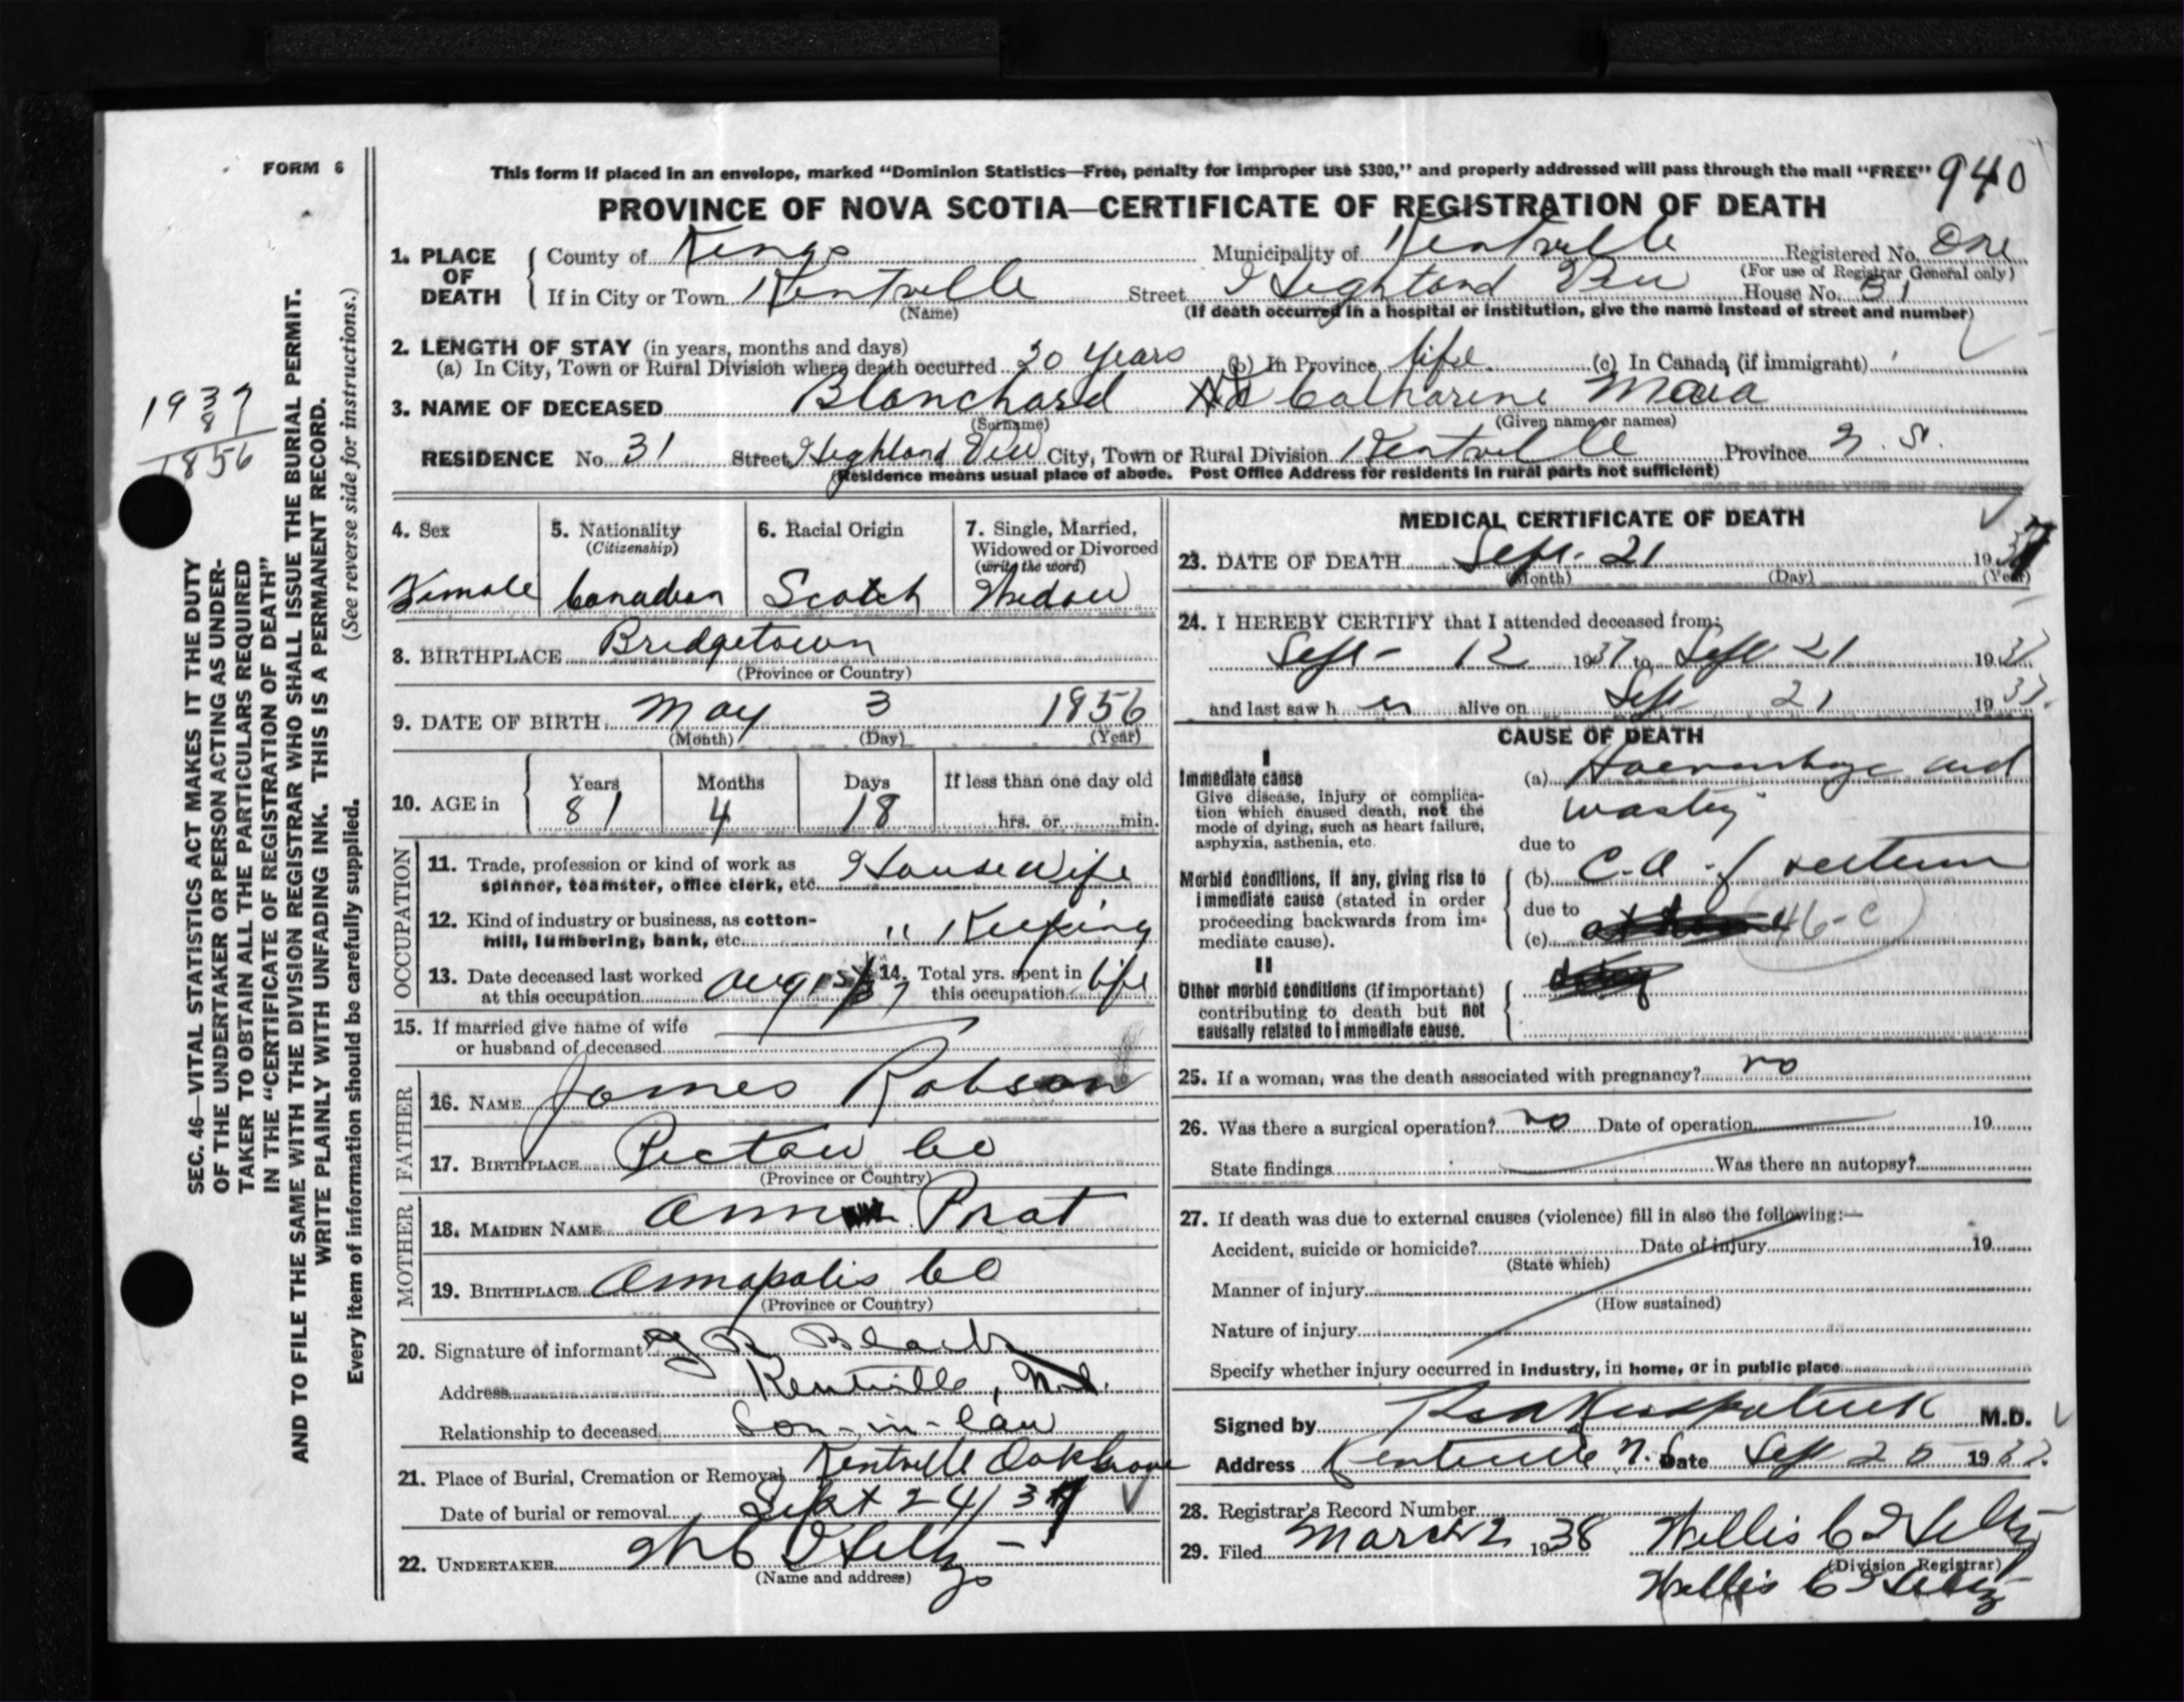 FORM 6
This form if placed in an envelope, marked "Dominion Statistics—Free, penalty for improper use $300," and properly addressed will pass through the mail "FREE" 940
PROVINCE OF NOVA SCOTIA—CERTIFICATE OF REGISTRATION OF DEATH
1. PLACE OF DEATH County of Kings Municipality of Kentville Registered No. One
(For use of Registrar General only)
If in City or Town Kentville Street Highland View House No. 31
(Name) (If death occurred in a hospital or institution, give the name instead of street and number)
2. LENGTH OF STAY (in years, months and days)
(a) In City, Town or Rural Division where death occurred 20 years (b) In Province life (c) In Canada (if immigrant)
3. NAME OF DECEASED Blanchard Catharine Maria
(Surname) (Given name or names)
RESIDENCE No. 31 Street Highland View City, Town or Rural Division Kentville Province N. S.
(Residence means usual place of abode. Post Office Address for residents in rural parts not sufficient)
1937
81
1856
SEC. 46—VITAL STATISTICS ACT MAKES IT THE DUTY
OF THE UNDERTAKER OR PERSON ACTING AS UNDER-
TAKER TO OBTAIN ALL THE PARTICULARS REQUIRED
IN THE "CERTIFICATE OF REGISTRATION OF DEATH"
AND TO FILE THE SAME WITH THE DIVISION REGISTRAR WHO SHALL ISSUE THE BURIAL PERMIT.
WRITE PLAINLY WITH UNFADING INK. THIS IS A PERMANENT RECORD.
Every item of information should be carefully supplied. (See reverse side for instructions.)
4. Sex 5. Nationality 6. Racial Origin 7. Single, Married,
(Citizenship) Widowed or Divorced
(write the word)
Female Canadian Scotch Widow
8. BIRTHPLACE Bridgetown
(Province or Country)
9. DATE OF BIRTH May 3 1856
(Month) (Day) (Year)
10. AGE in Years Months Days If less than one day old
81 4 18 hrs. or min.
OCCUPATION
11. Trade, profession or kind of work as
spinner, teamster, office clerk, etc. House Wife
12. Kind of industry or business, as cotton-
mill, lumbering, bank, etc. " Keeping
13. Date deceased last worked 14. Total yrs. spent in
at this occupation August 37 this occupation life
15. If married give name of wife
or husband of deceased
FATHER
16. NAME James Robson
17. BIRTHPLACE Pictou Co
(Province or Country)
MOTHER
18. MAIDEN NAME Ann Prat
19. BIRTHPLACE Annapolis Co
(Province or Country)
20. Signature of informant
Address Kentville, N.S.
Relationship to deceased Son-in-law
21. Place of Burial, Cremation or Removal Kentville Oak Grove
Date of burial or removal Sept 24/37
22. UNDERTAKER
(Name and address)
MEDICAL CERTIFICATE OF DEATH
23. DATE OF DEATH Sept. 21 1937
(Month) (Day) (Year)
24. I HEREBY CERTIFY that I attended deceased from:
Sept- 12 1937 to Sept 21 1937
and last saw her alive on Sept 21 1937.
CAUSE OF DEATH
I
Immediate cause (a) Haemorrhage and
Give disease, injury or complica- wasting
tion which caused death, not the
mode of dying, such as heart failure,
asphyxia, asthenia, etc. due to
Morbid conditions, if any, giving rise to (b) C.A. of rectum
immediate cause (stated in order due to
proceeding backwards from im-
mediate cause). (c) 46-c
II
Other morbid conditions (if important)
contributing to death but not
causally related to immediate cause.
25. If a woman, was the death associated with pregnancy? no
26. Was there a surgical operation? no Date of operation 19
State findings Was there an autopsy?
27. If death was due to external causes (violence) fill in also the following:—
Accident, suicide or homicide? Date of injury 19
(State which)
Manner of injury
(How sustained)
Nature of injury
Specify whether injury occurred in industry, in home, or in public place
Signed by M.D.
Address Kentville N.S. Date Sept 25 1937.
28. Registrar's Record Number
29. Filed March 2 1938 Willis C
(Division Registrar)
Willis C